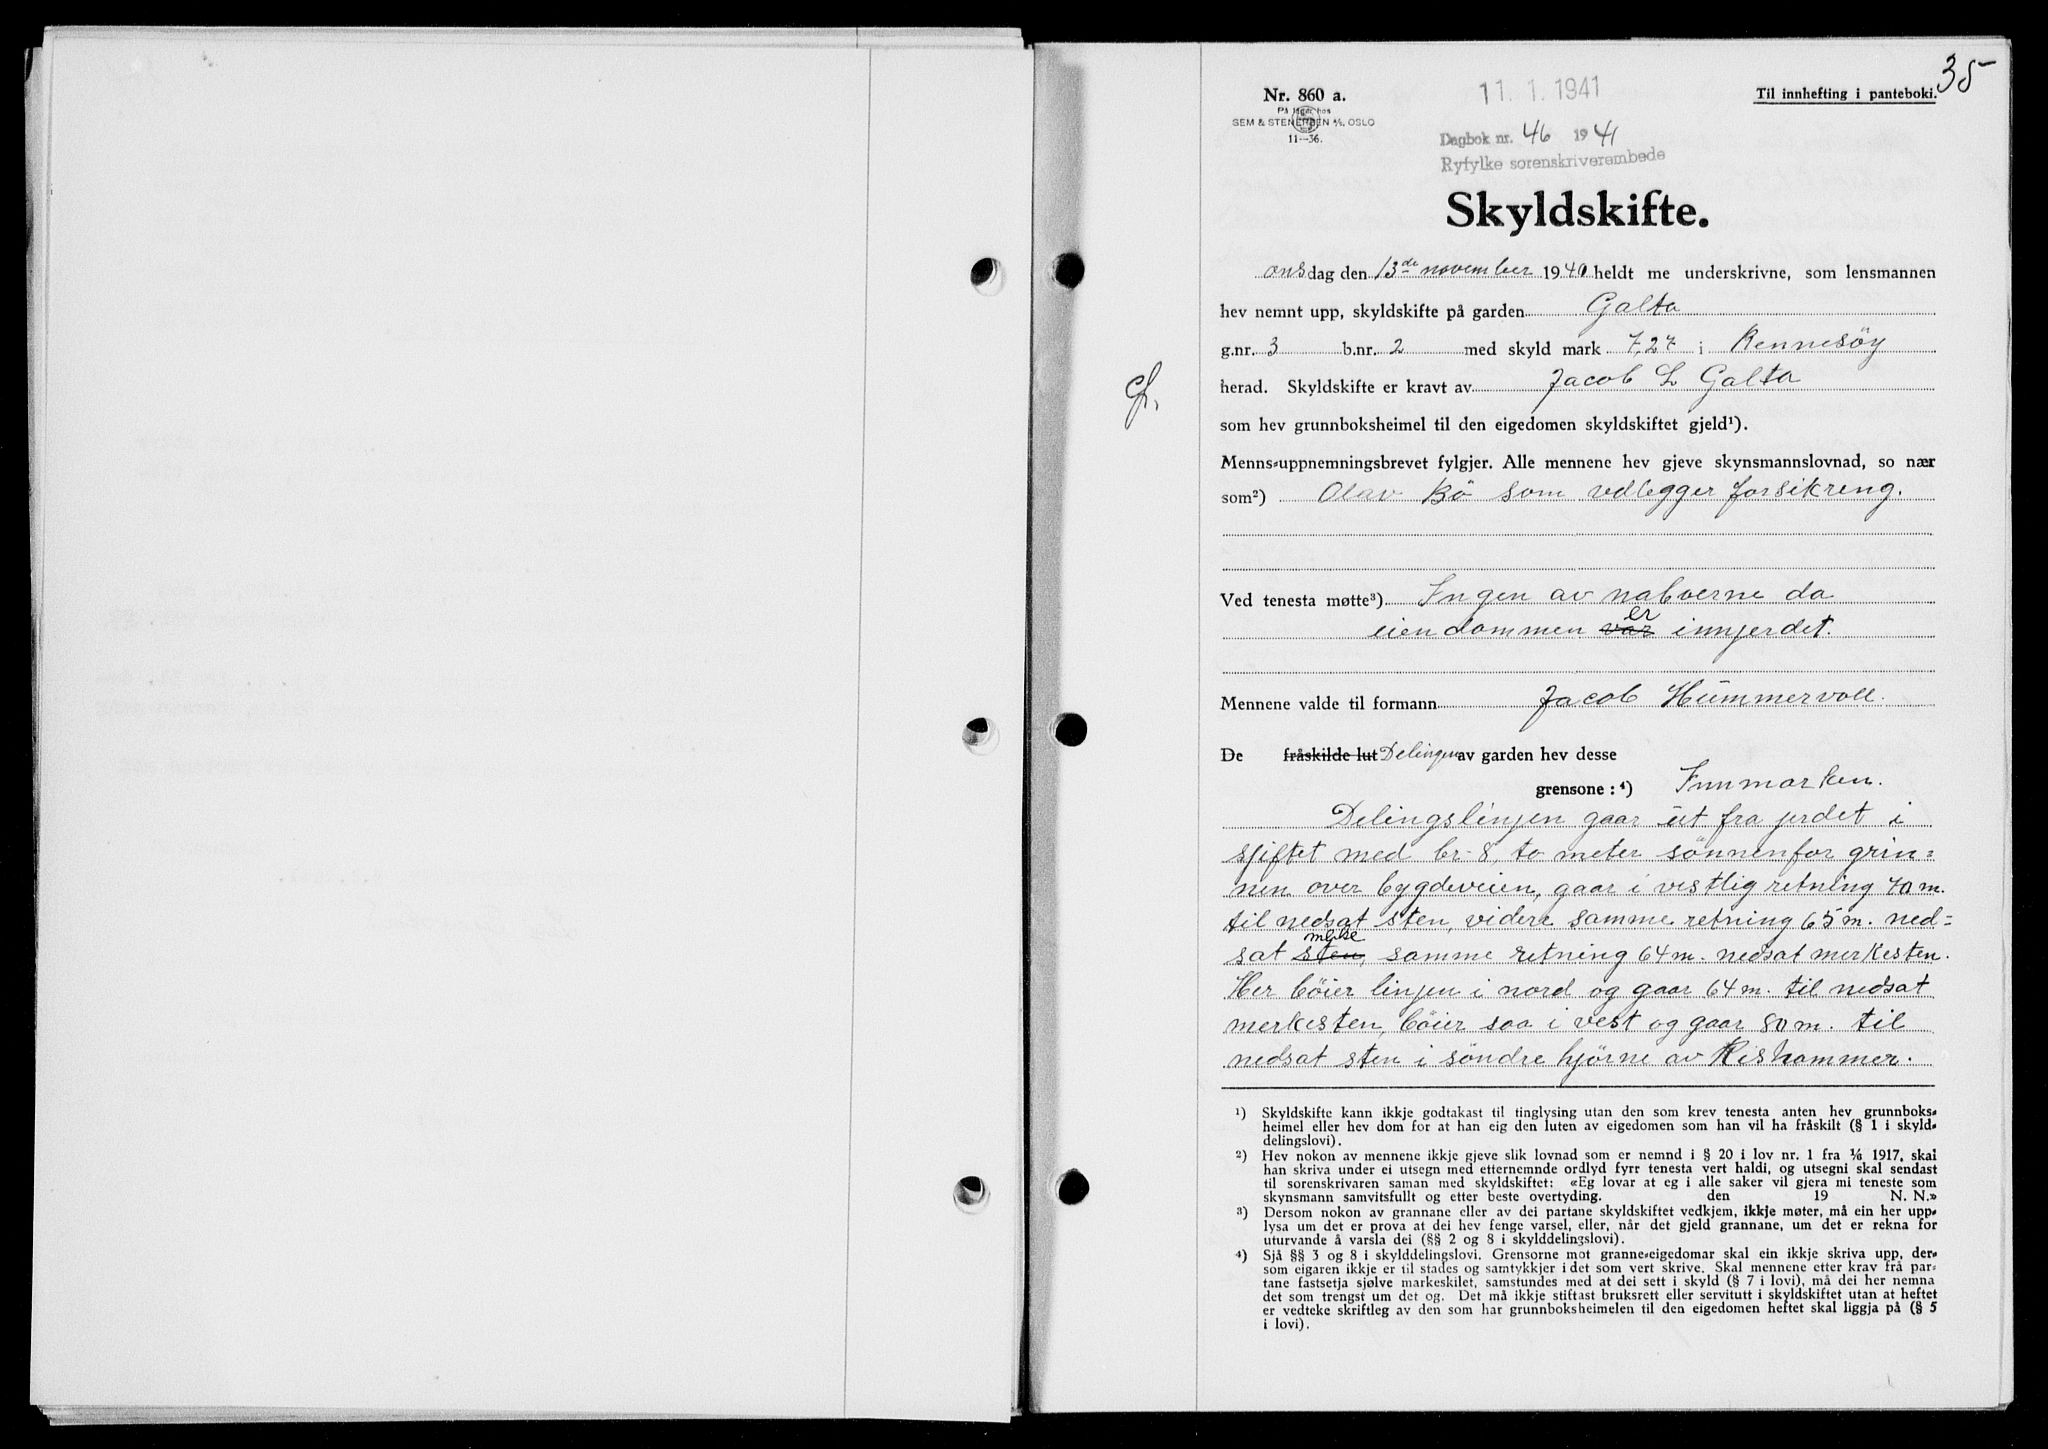 35
Nr. 860 a.
På lager hos
SEM & STENERSEN A/S, OSLO
11—36.
11. 1. 1941
Til innhefting i panteboki.
Dagbok nr. 46 1941
Ryfylke sorenskriverembede
Skyldskifte.
onsdag den 13de november 1940 heldt me underskrivne, som lensmannen
hev nemnt upp, skyldskifte på garden Galta
g.nr. 3 b.nr. 2 med skyld mark 7,27 i Rennesöy
herad. Skyldskifte er kravt av Jacob L Galta
som hev grunnboksheimel til den eigedomen skyldskiftet gjeld¹).
Menns-uppnemningsbrevet fylgjer. Alle mennene hev gjeve skynsmannslovnad, so nær
som²) Olav Bö som vedlegger forsikreng.
Ved tenesta møtte³) Ingen av naboerne da
eiendommen var er innjerdet.
Mennene valde til formann Jacob Hummervoll.
De fråskilde lut Delingen av garden hev desse
grensone: ⁴) Innmarken.
Delingslinjen gaar ut fra jerdet i
sjiftet med br-8, to meter sönnenfor grin=
nen over bygdeveien, gaar i vestlig retning 70 m.
til nedsat sten, videre samme retning 65 m. ned=
sat sten, samme retning 64 m. nedsat merkesten.
Her böier linjen i nord og gaar 64 m. til nedsat
merkesten, böier saa i vest og gaar 80 m. til
nedsat sten i söndre hjörne av Rishammer.
¹) Skyldskifte kann ikkje godtakast til tinglysing utan den som krev tenesta anten hev grunnboks-
heimel eller hev dom for at han eig den luten av eigedomen som han vil ha fråskilt (§ 1 i skyld-
delingslovi).
²) Hev nokon av mennene ikkje gjeve slik lovnad som er nemnd i § 20 i lov nr. 1 fra 1/6 1917, skal
han skriva under ei utsegn med etternemnde ordlyd fyrr tenesta vert haldi, og utsegni skal sendast
til sorenskrivaren saman med skyldskiftet: «Eg lovar at eg i alle saker vil gjera mi teneste som
skynsmann samvitsfullt og etter beste overtyding. den 19 N. N.»
³) Dersom nokon av grannane eller av dei partane skyldskiftet vedkjem, ikkje møter, må ein her upp-
lysa um det er prova at dei hev fenge varsel, eller, når det gjeld grannane, um det er rekna for
uturvande å varsla dei (§§ 2 og 8 i skylddelingslovi).
⁴) Sjå §§ 3 og 8 i skylddelingslovi. Grensorne mot granne-eigedomar skal ein ikkje skriva upp, der-
som eigaren ikkje er til stades og samtykkjer i det som vert skrive. Skal mennene etter krav frå par-
tane fastsetja sjølve markeskilet, samstundes med at dei sett i skyld (§ 7 i lovi), må dei her nemna
det som trengst um det og. Det må ikkje stiftast bruksrett eller servitutt i skyldskiftet utan at heftet
er vedteke skriftleg av den som har grunnboksheimelen til den eigedomen heftet skal liggja på (§ 5
i lovi).